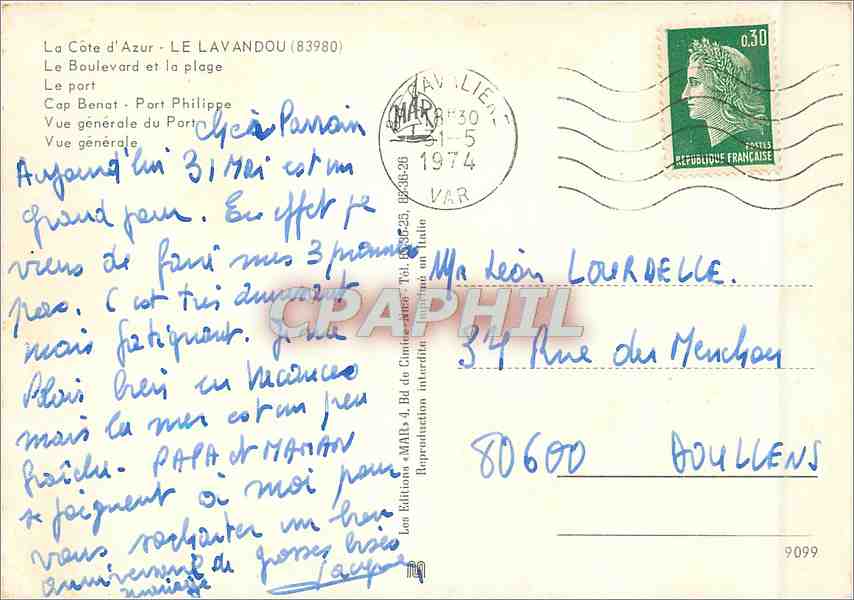 La Côte d'Azur - LE LAVANDOU (83980)
Le Boulevard et la plage
Le port
Cap Benat - Port Philippe
Vue générale du Port
Vue générale
Cher Parrain
Aujourd'hui 31 MAI est un
grand jour. En effet je
viens de faire mes 3 premiers
pas. C est très amusant
mais fatiguant. Je me
plais bien en vacances
mais la mer est un peu
fraîche. PAPA et MAMAN
se joignent à moi pour
vous souhaiter un bon
anniversaire de
mariage
grosses bises
CAVALIERE
MAR
8H30
31-5
1974
VAR
0,30
POSTES
RÉPUBLIQUE FRANÇAISE
Les Editions «MAR» 4, Bd de Cimiez-Nice - Tél. 85-36-25, 85-36-26
Reproduction interdite - Imprimé en Italie
CPAPHIL
Mr Léon LOURDELLE.
34 Rue du Menchon
80600 DOULLENS
9099